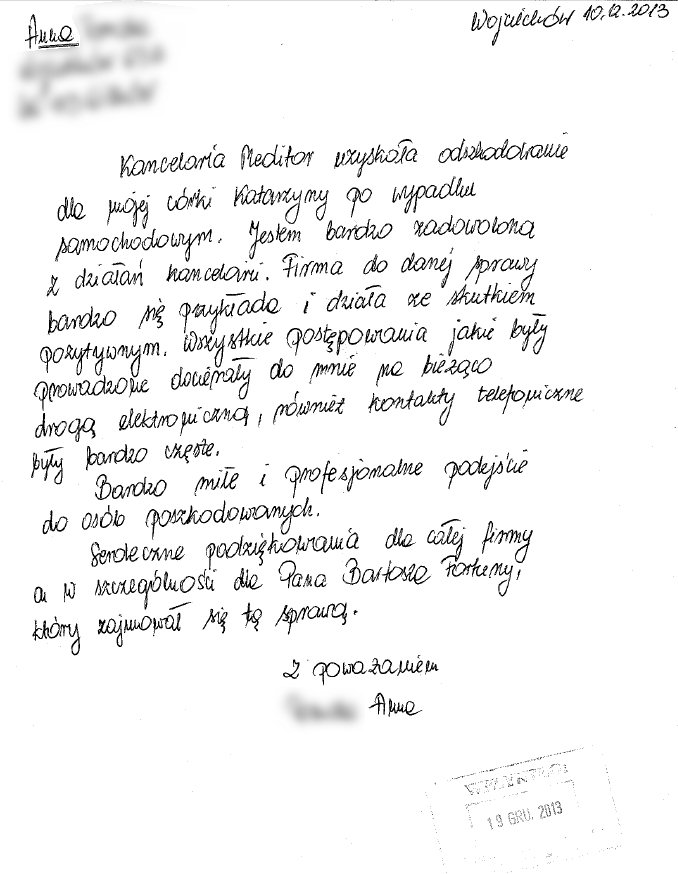 Anna
Wojciechów 10.12.2013
Kancelaria Meditor uzyskała odszkodowanie
dla mojej córki Katarzyny po wypadku
samochodowym. Jestem bardzo zadowolona
z działań kancelarii. Firma do danej sprawy
bardzo się przykłada i działa ze skutkiem
pozytywnym. Wszystkie postępowania jakie były
prowadzone docierały do mnie na bieżąco
drogą elektroniczną, również kontakty telefoniczne
były bardzo częste.
Bardzo miłe i profesjonalne podejście
do osób poszkodowanych.
Serdeczne podziękowania dla całej firmy
a w szczególności dla Pana Bartosza Forteny,
który zajmował się tą sprawą.
Z poważaniem
Anna
19 GRU. 2013